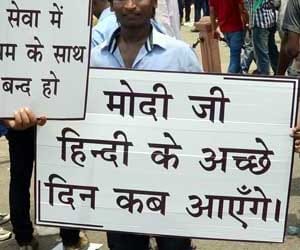 सेवा में
के साथ
बन्द हो
मोदी जी
हिन्दी के अच्छे
दिन कब आएँगे।